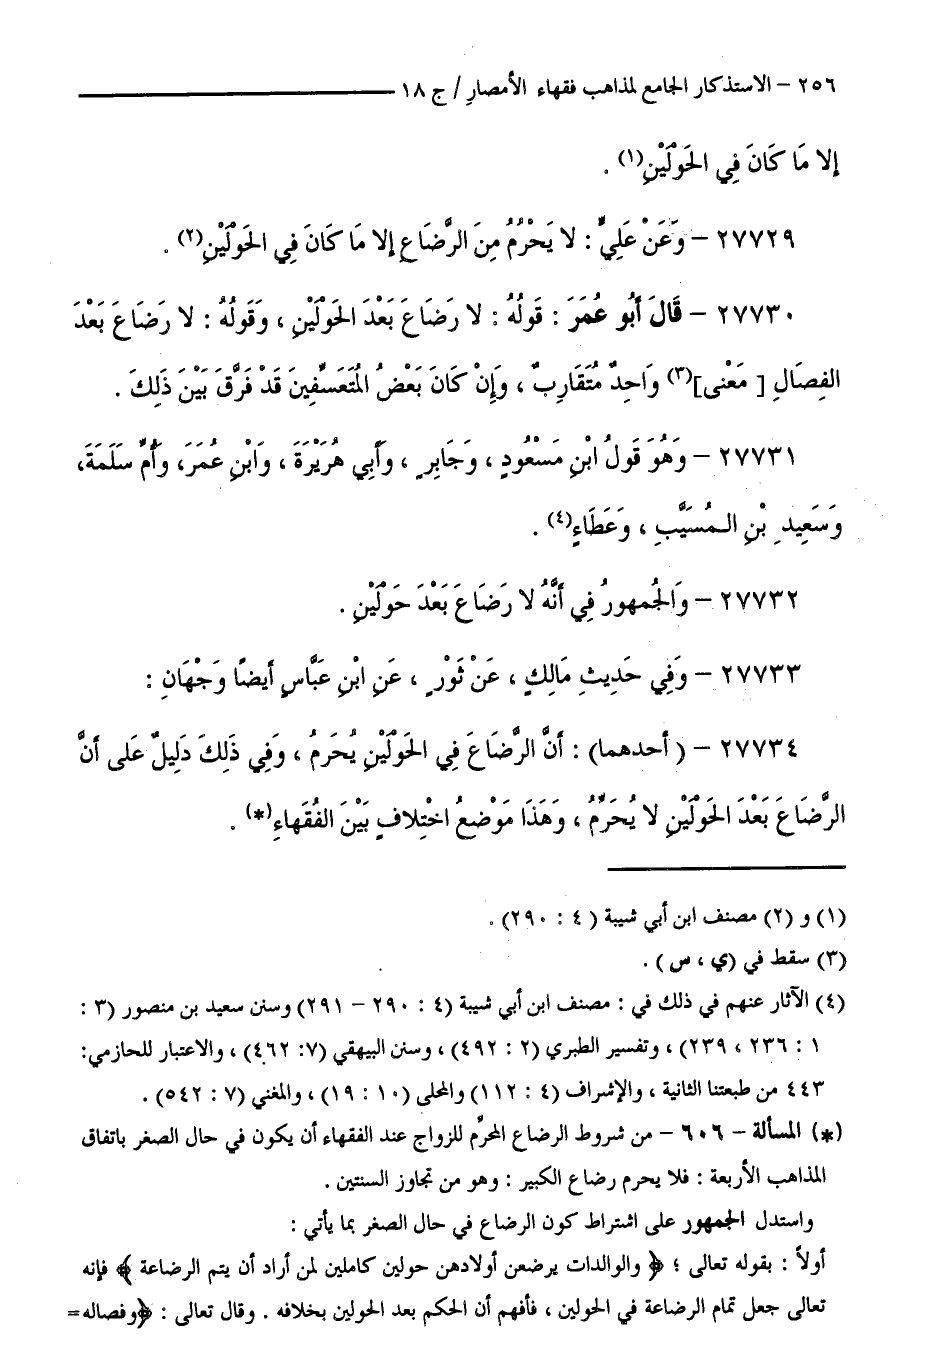 ٢٥٦ - الاستذكار الجامع لمذاهب فقهاء الأمصار / ج ١٨
إلا مَا كَانَ فِي الحَوْلَيْنِ(١) .
٢٧٧٢٩ - وَعَنْ عَلِيٍّ : لا يَحْرُمُ مِنَ الرَّضَاعِ إلا مَا كَانَ فِي الحَوْلَيْنِ(٢) .
٢٧٧٣٠ - قَالَ أَبُو عُمَرَ : قَولُهُ : لا رَضَاعَ بَعْدَ الحَوْلَيْنِ ، وَقَولُهُ : لا رَضَاعَ بَعْدَ
الفِصَالِ [ مَعْنى ](٣) وَاحِدٌ مُتَقَارِبٌ ، وَإِنْ كَانَ بَعْضُ المُتَعَسِّفِينَ قَدْ فَرَّقَ بَيْنَ ذَلِكَ .
٢٧٧٣١ - وَهُوَ قَولُ ابْنِ مَسْعُودٍ ، وَجَابِرٍ ، وَأَبِي هُرَيْرَةَ ، وَابْنِ عُمَرَ، وَأُمِّ سَلَمَةَ،
وَسَعِيدِ بْنِ المُسَيَّبِ ، وَعَطَاءٍ(٤) .
٢٧٧٣٢ - وَالجُمهورُ فِي أَنَّهُ لا رَضَاعَ بَعْدَ حَوْلَيْنِ .
٢٧٧٣٣ - وَفِي حَدِيثِ مَالِكٍ ، عَنْ ثَوْرٍ ، عَنِ ابْنِ عَبَّاسٍ أيضًا وَجْهَانِ :
٢٧٧٣٤ - ( أحدهما) : أَنَّ الرَّضَاعَ فِي الحَولَيْنِ يُحَرِمُ ، وَفِي ذَلِكَ دَلِيلٌ عَلى أَنَّ
الرَّضَاعَ بَعْدَ الحَوْلَيْنِ لا يُحَرِّمُ ، وَهَذَا مَوْضعُ اخْتِلافٍ بَيْنَ الفُقَهاءِ(*) .
(١) و (٢) مصنف ابن أبي شيبة ( ٤ : ٢٩٠) .
(٣) سقط في (ي ، س ) .
(٤) الآثار عنهم في ذلك في : مصنف ابن أبي شيبة (٤ : ٢٩٠ - ٢٩١) وسنن سعيد بن منصور (٣ :
١ : ٢٣٦ ، ٢٣٩) ، وتفسير الطبري (٢ : ٤٩٢) ، وسنن البيهقي (٧: ٤٦٢) ، والاعتبار للحازمي:
٤٤٣ من طبعتنا الثانية ، والإشراف (٤ : ١١٢) والمحلى (١٠ : ١٩) ، والمغني (٧ : ٥٤٢) .
(*) المسألة - ٦٠٦ - من شروط الرضاع المحرِّم للزواج عند الفقهاء أن يكون في حال الصغر باتفاق
المذاهب الأربعة : فلا يحرم رضاع الكبير : وهو من تجاوز السنتين .
واستدل الجمهور على اشتراط كون الرضاع في حال الصغر بما يأتي :
أولاً : بقوله تعالى ؛ ﴿ والوالدات يرضعن أولادهن حولين كاملين لمن أراد أن يتم الرضاعة ﴾ فإنه
تعالى جعل تمام الرضاعة في الحولين ، فأفهم أن الحكم بعد الحولين بخلافه . وقال تعالى : ﴿وفصاله=